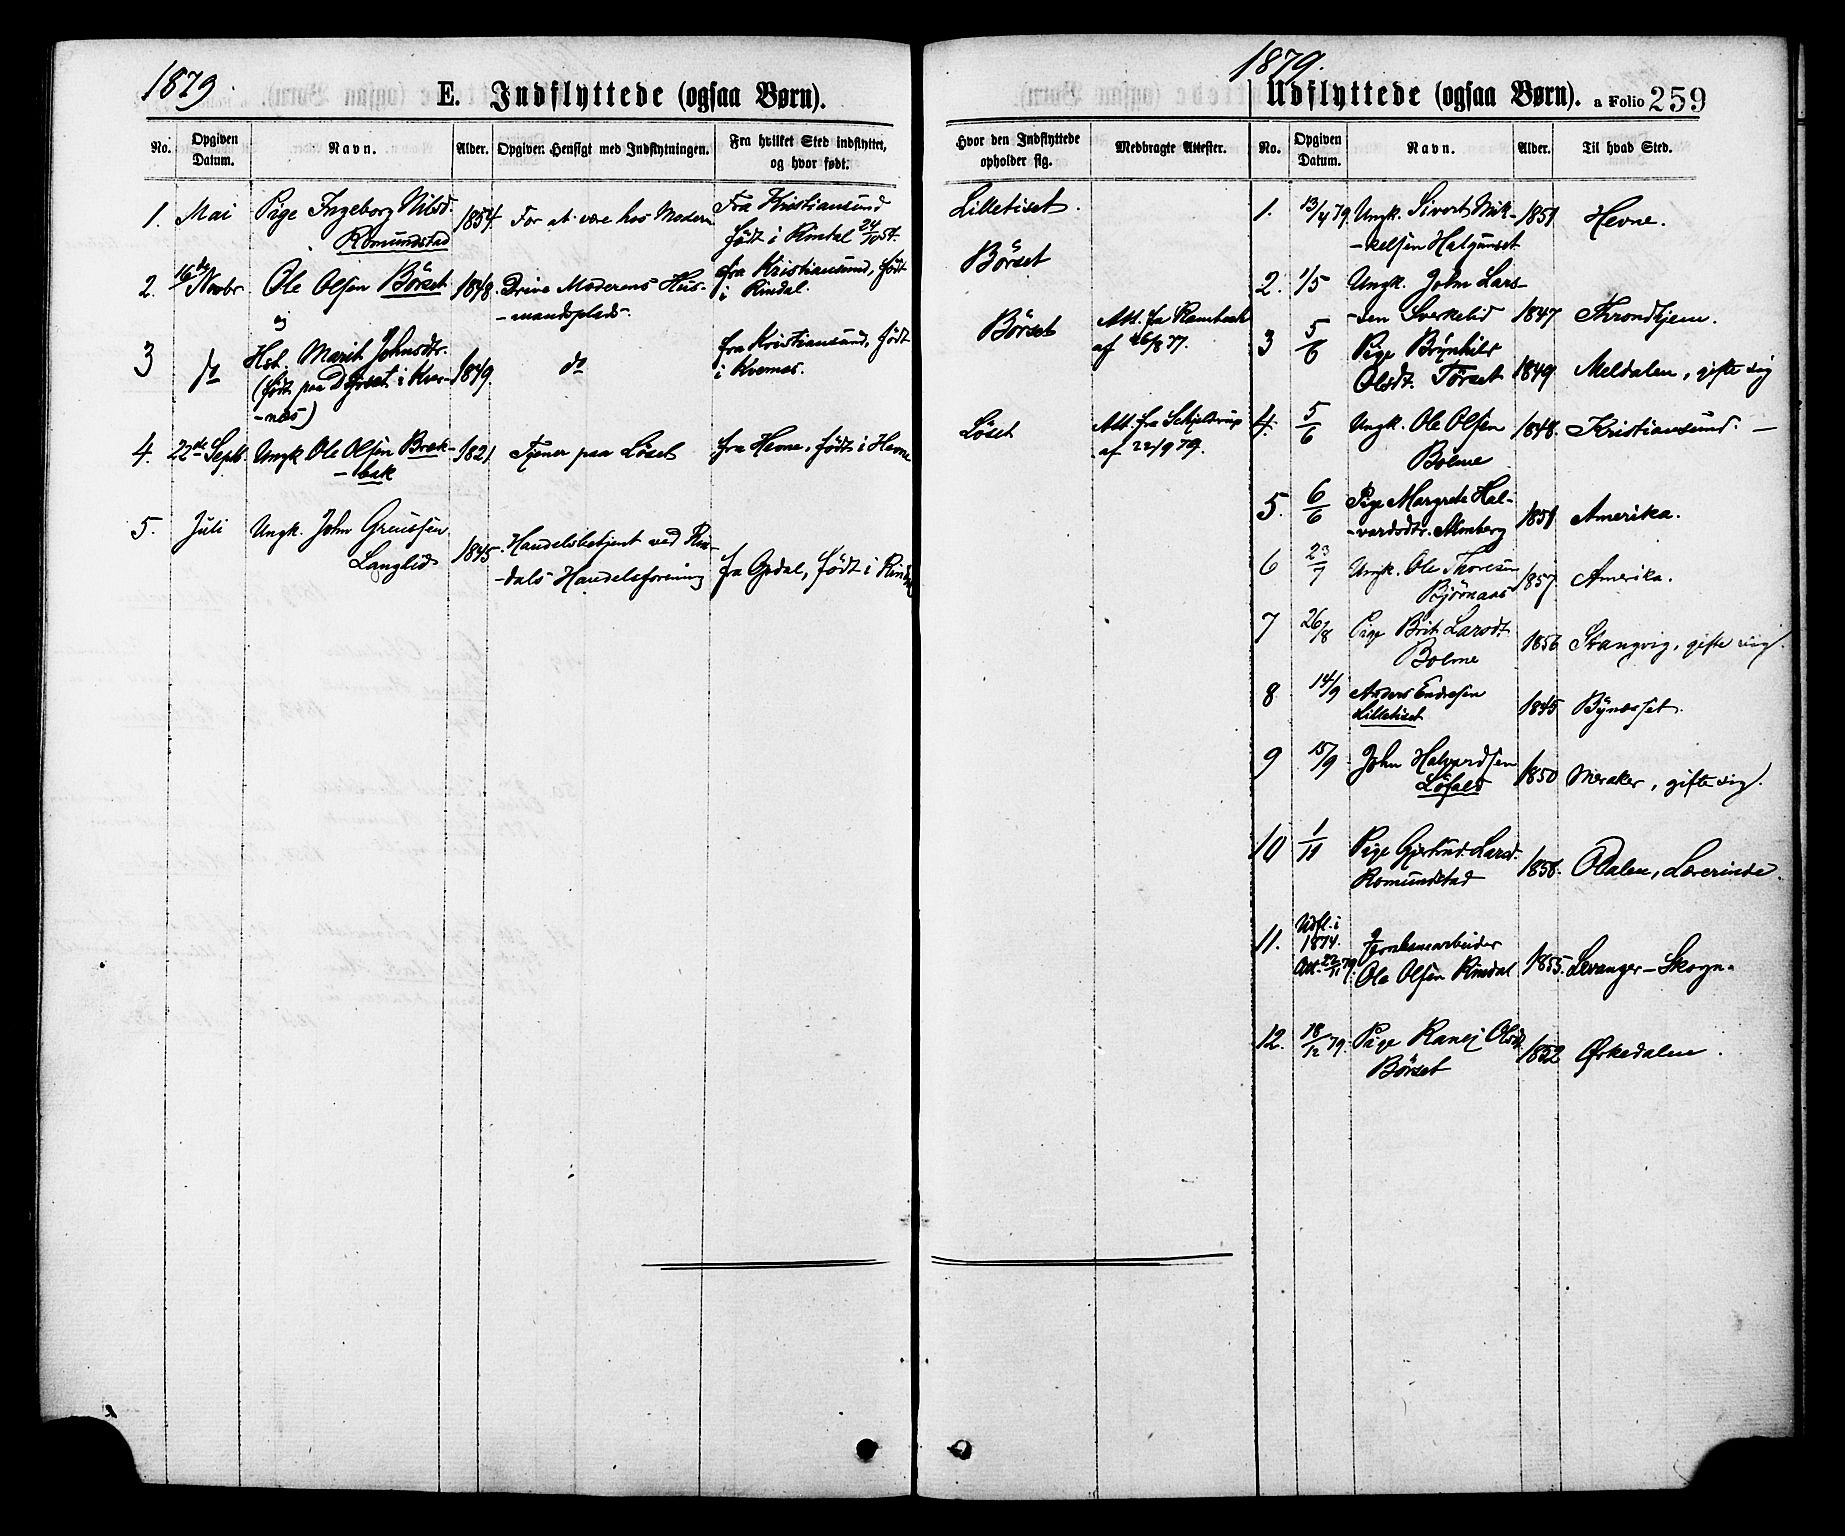 1879.
E. Indflyttede (ogsaa Børn).
No.
Opgiven
Datum.
Navn.
Alder.
Opgiven Hensigt med Indflytningen.
Fra hvilket Sted indflyttet,
og hvor født.
1. Mai Pige Ingeborg Nilsd. 1854. For at være hos Moderen Fra Kristiansund
Romundstad født i Rindal 24/10 54.
2. 16de Novbr Ole Olsen Börset 1848. Drive Moderens Hus- fra Kristiansund, født
og -mandsplads. i Rindal.
3 do Hst. Marit Johnsdtr. 1849. do fra Kristiansund, født
(født paa i Kver- i Kvernes.
-nes)
4. 22de Septb. Ungk Ole Olsen Bræk- 1821 Tjener paa Löset fra Hevne, født i Hevne
-bak
5. Juli Ungk. John 1845 Handelsbetjent ved Rin-
Langlid -dals Handelsforening fra Opdal, født i Rindal
Hvor den Indflyttede
opholder sig.
Medbragte Attester.
Lilletiset.
Börset
Börset Att. fra Rambech
af 26/8 77.
Löset Att. fra Schjelderup
af 22/9 79.
1879.
Udflyttede (ogsaa Børn). a Folio 259
No.
Opgiven
Datum.
Navn.
Alder.
Til hvad Sted.
1. 13/4 79. Ungk. Sivert Mik- 1851 Hevne.
-kelsen Halgunset
2. 1/5 Ungk. John Lars-
-sen Sverkelid 1847 Throndhjem.
3 5/6 Pige Brynhild
Olsdt. Törset 1849 Meldalen, gifte sig
4. 5/6 Ungk. Ole Olsen 1848. Kristiansund. —
Bolme
5. 6/6 Pige Margrete Hal-
-vardsdtr. Almberg 1851 Amerika.
6 23/7 Ungk. Ole Thoresen 1857. Amerika.
Björnaas
7 26/8 Pige Brit Larsdt 1856 Stangvig, gifte sig.
Bolme
8 14/9 Anders Endresen 1845 Bynæsset.
Lilletiset
9 15/9 John Halvardsen 1850 Meraker, gifte sig.
Löfald
10 1/11 Pige Gjertrud Larsd. 1858. Odalen, Lærerinde.
Romundstad
11. Udfl. i
1874. Jernbanearbeider
Att. 22/11 79. Ole Olsen Rindal 1855. Levanger-Skogn.
12. 18/12 79. Pige Ranei Olsd. 1852 Ørkedalen.
Börset